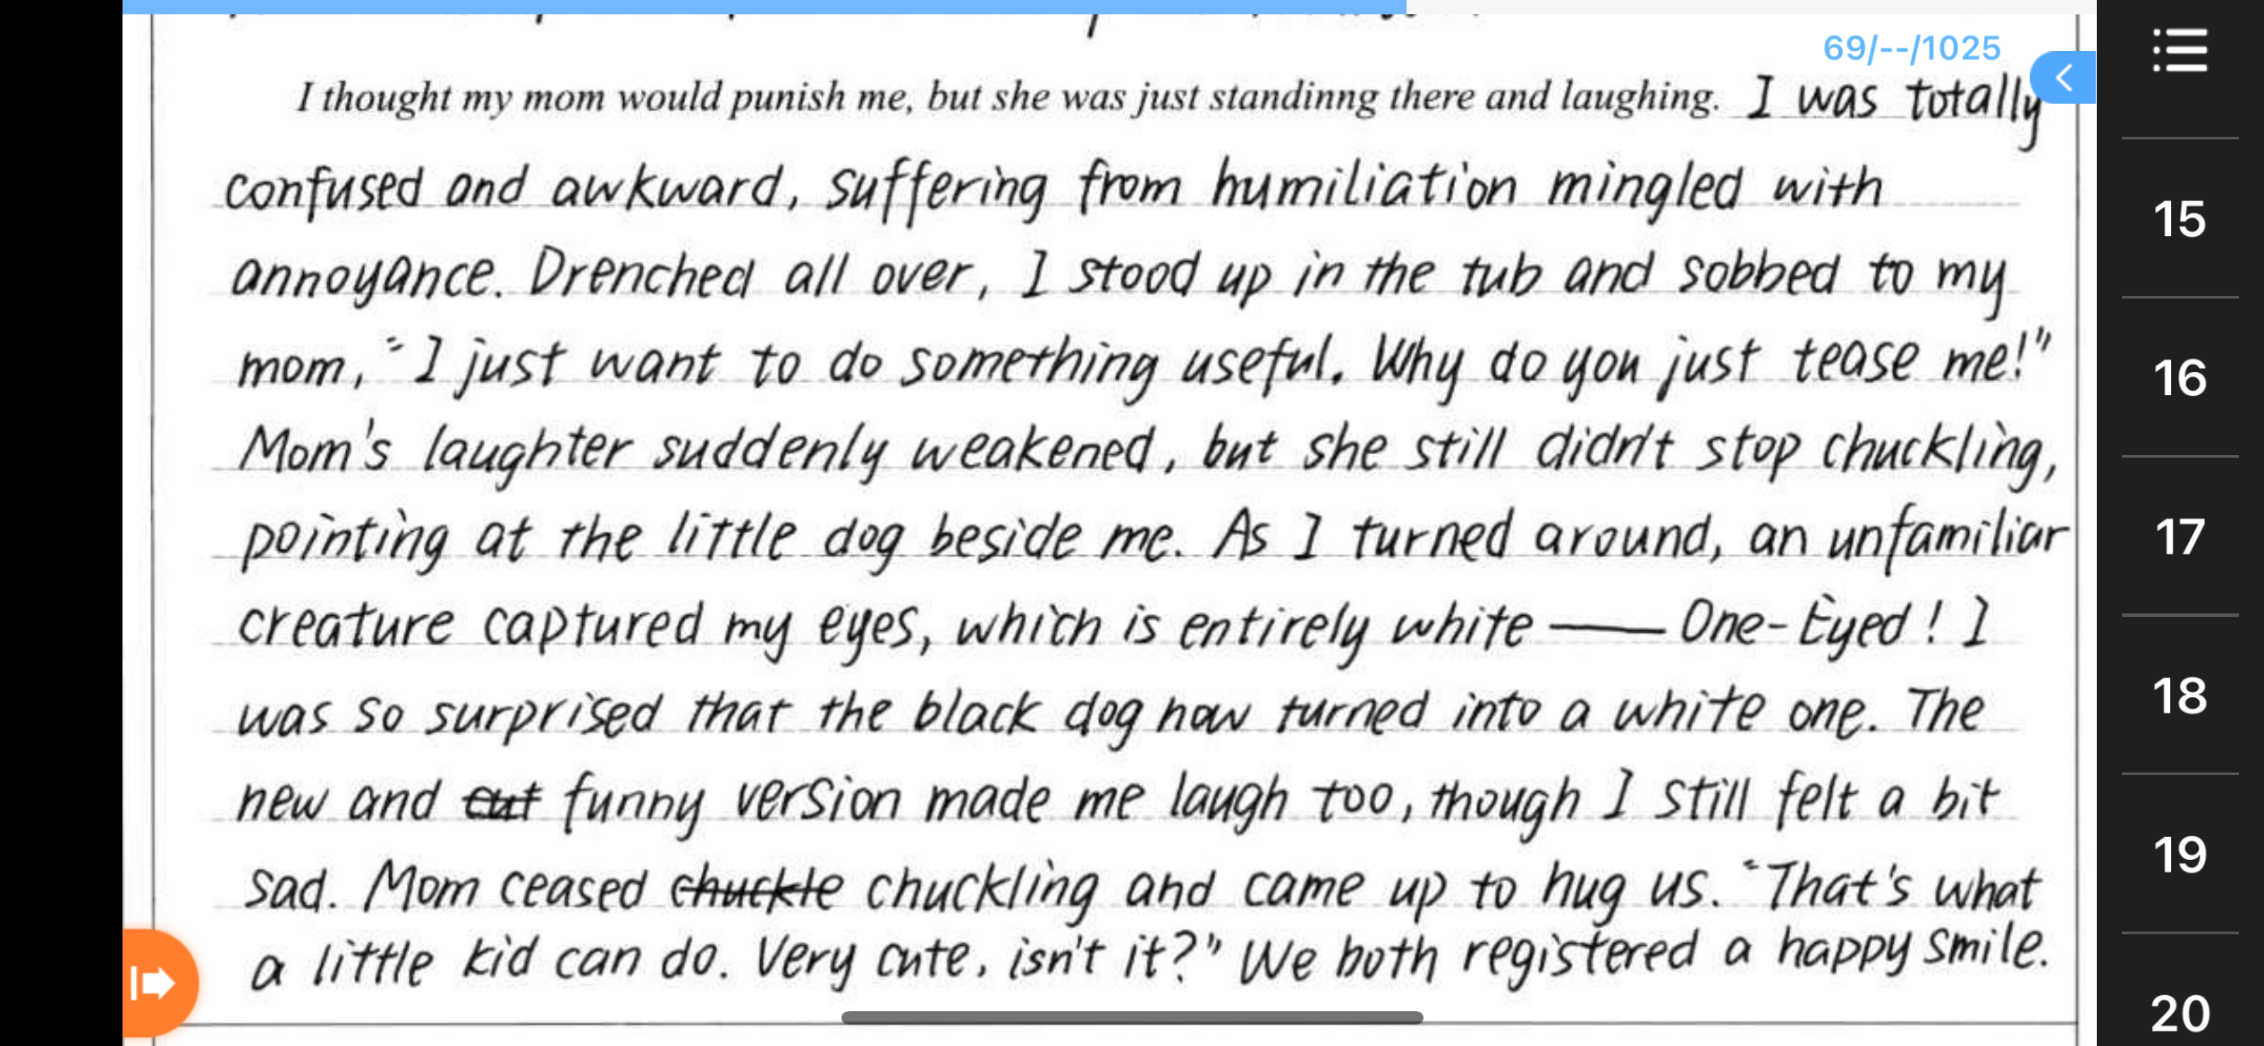 69/--/1025
I thought my mom would punish me, but she was just standinng there and laughing. I was totally
confused and awkward, suffering from humiliation mingled with
annoyance. Drenched all over, I stood up in the tub and sobbed to my
mom, "I just want to do something useful. Why do you just tease me!"
Mom's laughter suddenly weakened, but she still didn't stop chuckling,
pointing at the little dog beside me. As I turned around, an unfamiliar
creature captured my eyes, which is entirely white — One-Eyed! I
was so surprised that the black dog now turned into a white one. The
new and cut funny version made me laugh too, though I still felt a bit
sad. Mom ceased chuckle chuckling and came up to hug us. "That's what
a little kid can do. Very cute, isn't it?" We both registered a happy smile.
15
16
17
18
19
20